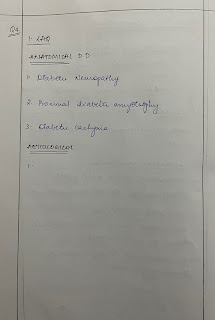 Q4
1. LAQ
ANATOMICAL D D
1. Diabetic Neuropathy
2. Proximal diabetic amyotrophy
3. Diabetic
AETIOLOGICAL
1.